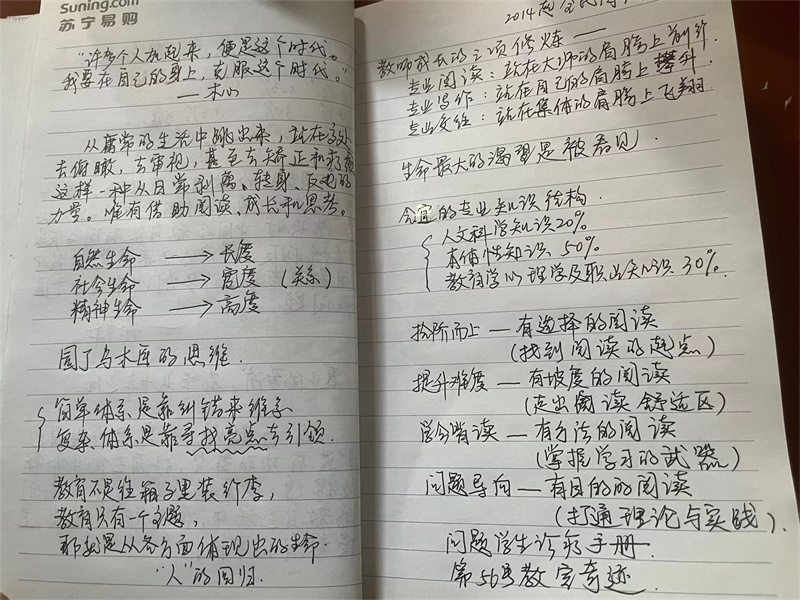 Suning.com
苏宁易购
"许多个人加起来，便是这个时代。
我要在自己的身上，克服这个时代。"
——木心
从庸常的生活中跳出来，站在高处
去俯瞰，去审视，甚至去矫正和
这样一种从日常剥离、转身、反思的
力量。唯有借助阅读、成长和思考。
自然生命 → 长度
社会生命 → 宽度 (关系)
精神生命 → 高度
园丁与木匠的思维.
简单体系是靠纠错来维系
复杂体系是靠寻找亮点去引领.
教育不是往箱子里装行李，
教育只有一个主题，
那就是从各方面体现出的生命.
"人"的回归.
2014
教师成长的三项修炼——
专业阅读：站在大师的肩膀上前行
专业写作：站在自己的肩膀上攀升
专业交往：站在集体的肩膀上飞翔
生命最大的渴望是被看见.
合宜的专业知识结构.
人文科学知识20%
本体性知识 50%
教育学心理学及职业知识 30%
拾阶而上 — 有选择的阅读
(找到阅读的起点)
提升难度 — 有坡度的阅读
(走出阅读舒适区)
学会啃读 — 有方法的阅读
(掌握学习的武器)
问题导向 — 有目的的阅读
(打通理论与实践).
问题学生诊疗手册
第56号教室奇迹.